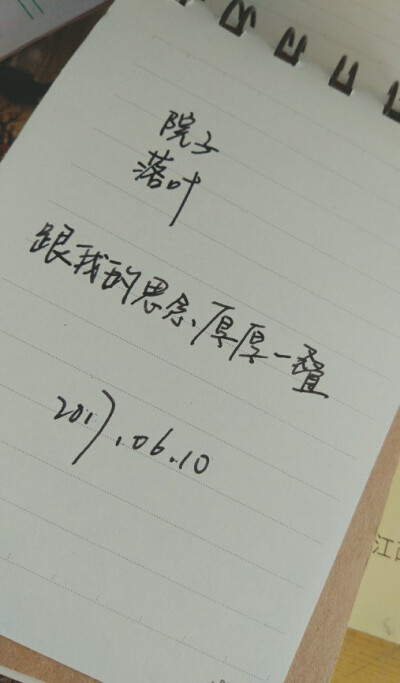 院子
落叶
跟我的思念、厚厚一叠
2017.06.10
江